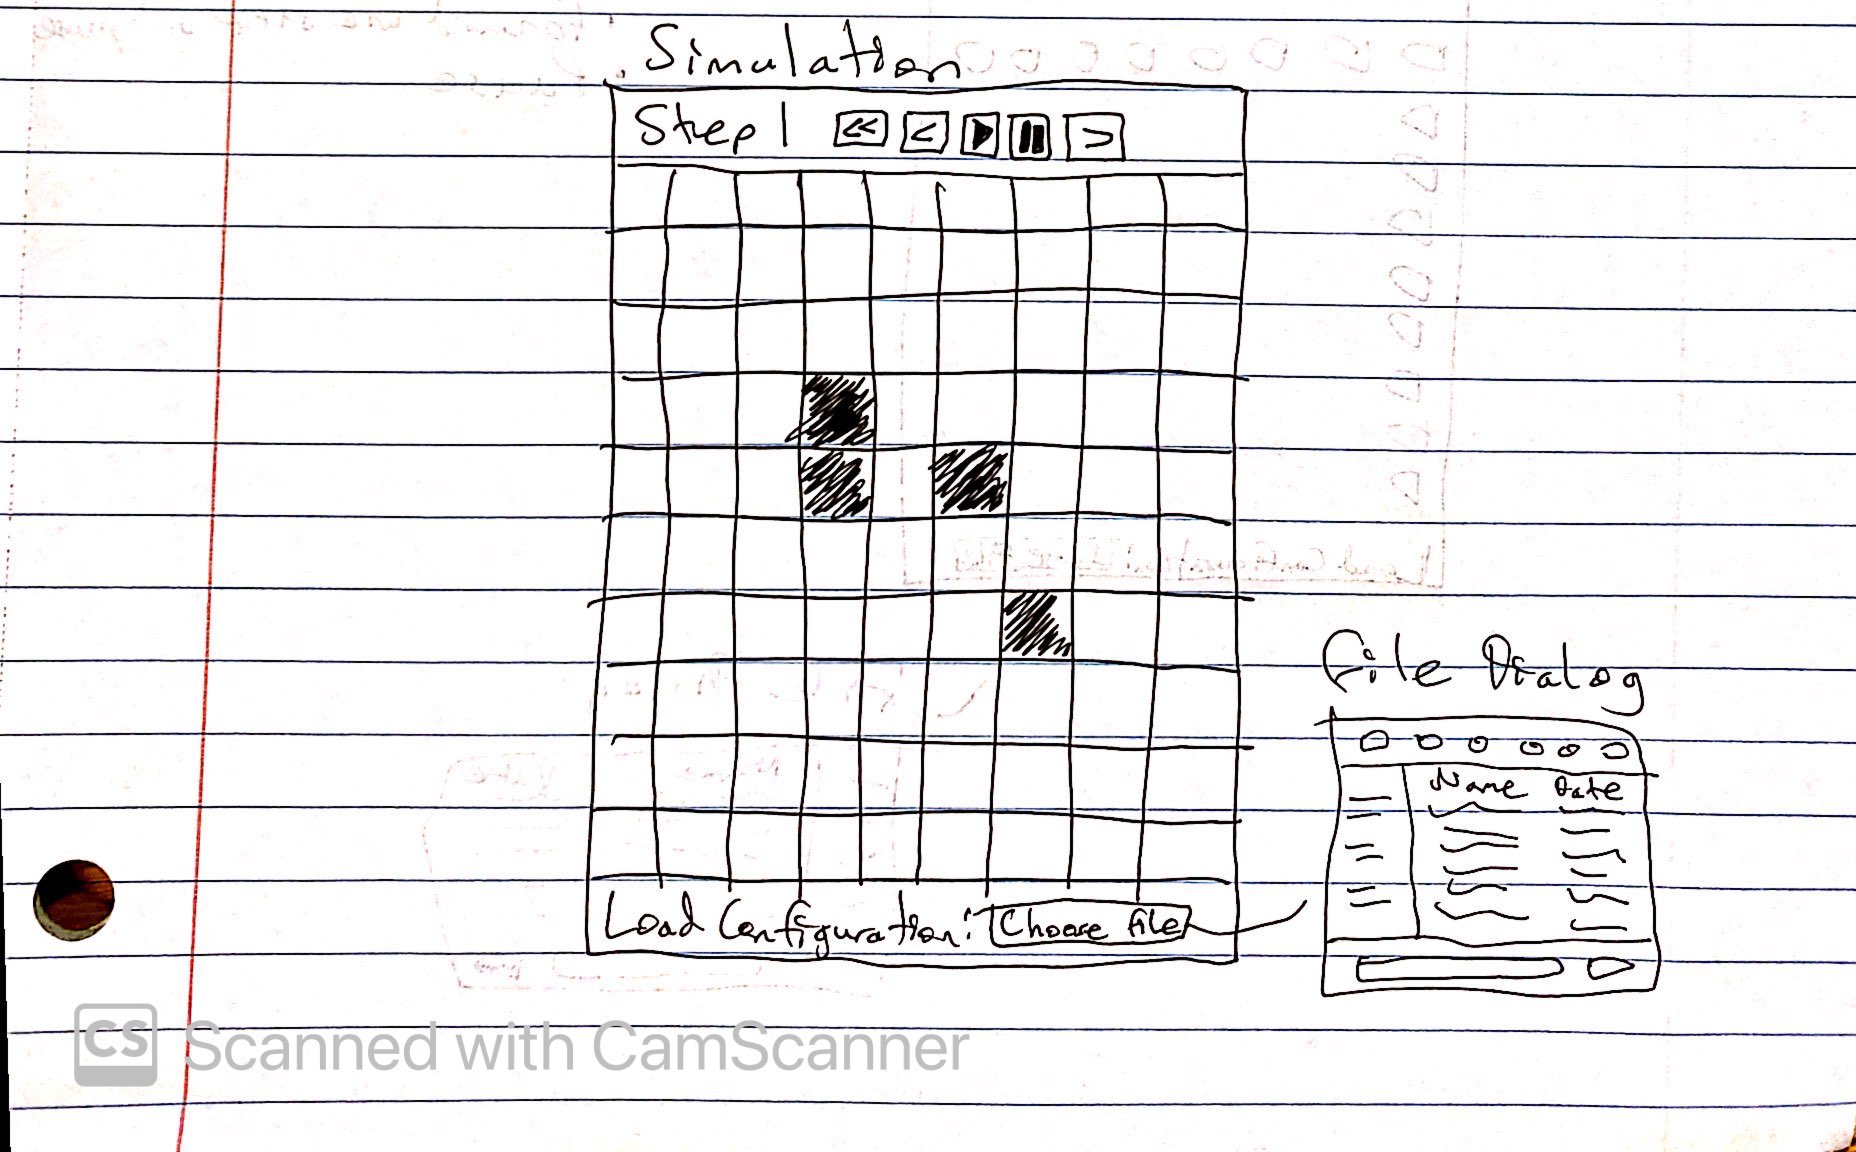 Simulation
Step 1 << < > >
Load Configuration: Choose file
File Dialog
Name Date
CS Scanned with CamScanner